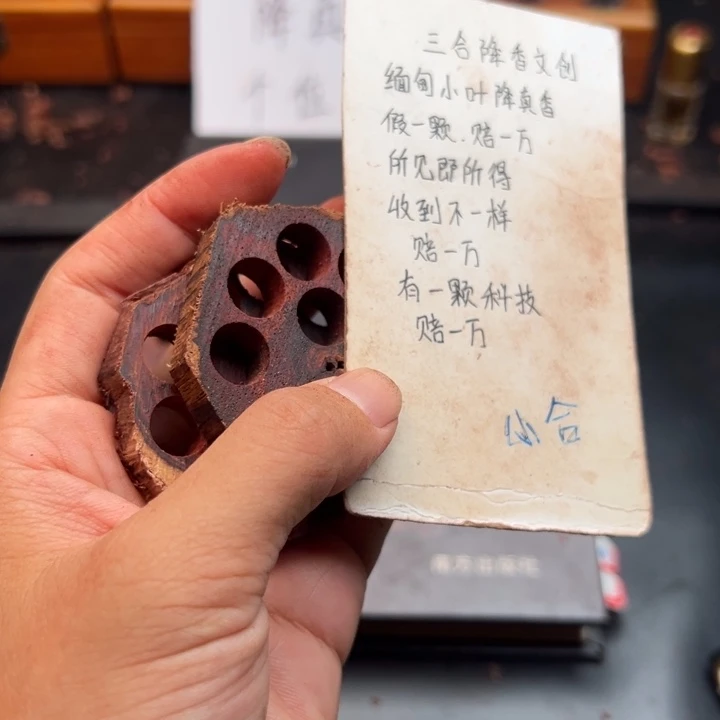 三合降香文创
缅甸小叶降真香
假一颗.赔一万
所见即所得
收到不一样
赔一万
有一颗科技
赔一万
小合